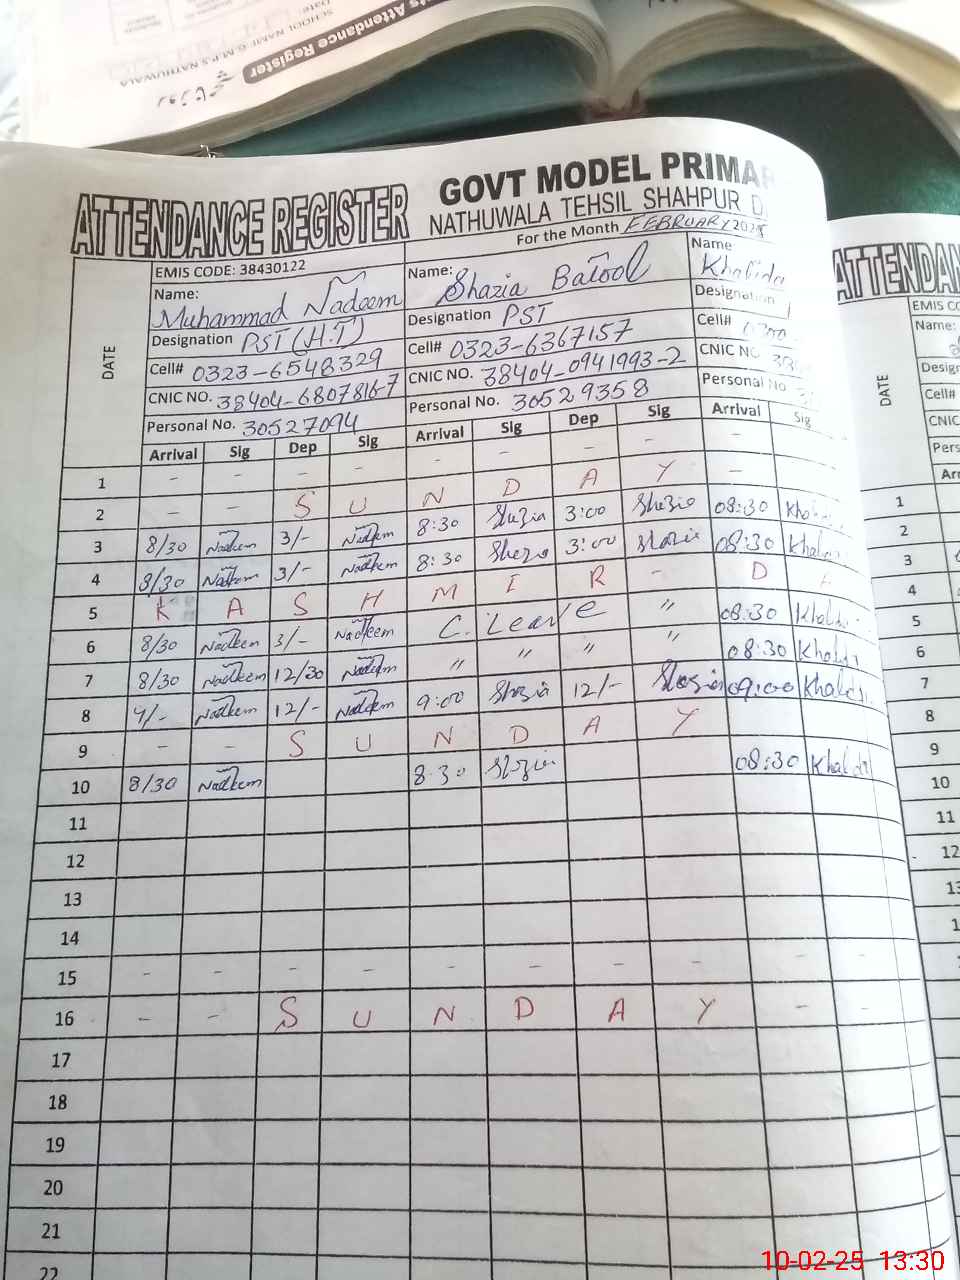 Attendance Register
SCHOOL NAME G.M.P.S NATHUWALA
ATTENDANCE REGISTER
GOVT MODEL PRIMAR
NATHUWALA TEHSIL SHAHPUR D
For the Month FEBRUARY 2025
DATE
EMIS CODE: 38430122
Name: Muhammad Nadeem
Designation PST (H.T)
Cell# 0323-6548329
CNIC NO. 38404-6807816-7
Personal No. 30527094
Name: Shazia Batool
Designation PST
Cell# 0323-6367157
CNIC NO. 38404-0941993-2
Personal No. 30529358
Name Khalida
Designation
Cell# 0300
CNIC NO
Personal No.
Arrival Sig Dep Sig Arrival Sig Dep Sig Arrival Sig
1 - - - - - - - - -
2 - - S U N D A Y -
3 8/30 Nadeem 3/- Nadeem 8:30 Shazia 3:00 Shazia 08:30 Khalida
4 8/30 Nadeem 3/- Nadeem 8:30 Shazia 3:00 Shazia 08:30 Khalida
5 K A S H M I R - D
6 8/30 Nadeem 3/- Nadeem C. Leave " 08:30 Khalida
7 8/30 Nadeem 12/30 Nadeem " " " " 08:30 Khalida
8 9/- Nadeem 12/- Nadeem 9:00 Shazia 12/- Shazia 09:00 Khalida
9 - - S U N D A Y
10 8/30 Nadeem 8:30 Shazia 08:30 Khalida
11
12
13
14
15 - - - - - - - - - -
16 - - S U N D A Y - -
17
18
19
20
21
22
ATTENDAN
DATE
EMIS CO
Name:
Design
Cell#
CNIC
Pers
Arr
1
2
3
4
5
6
7
8
9
10
11
12
13
10-02-25 13:30